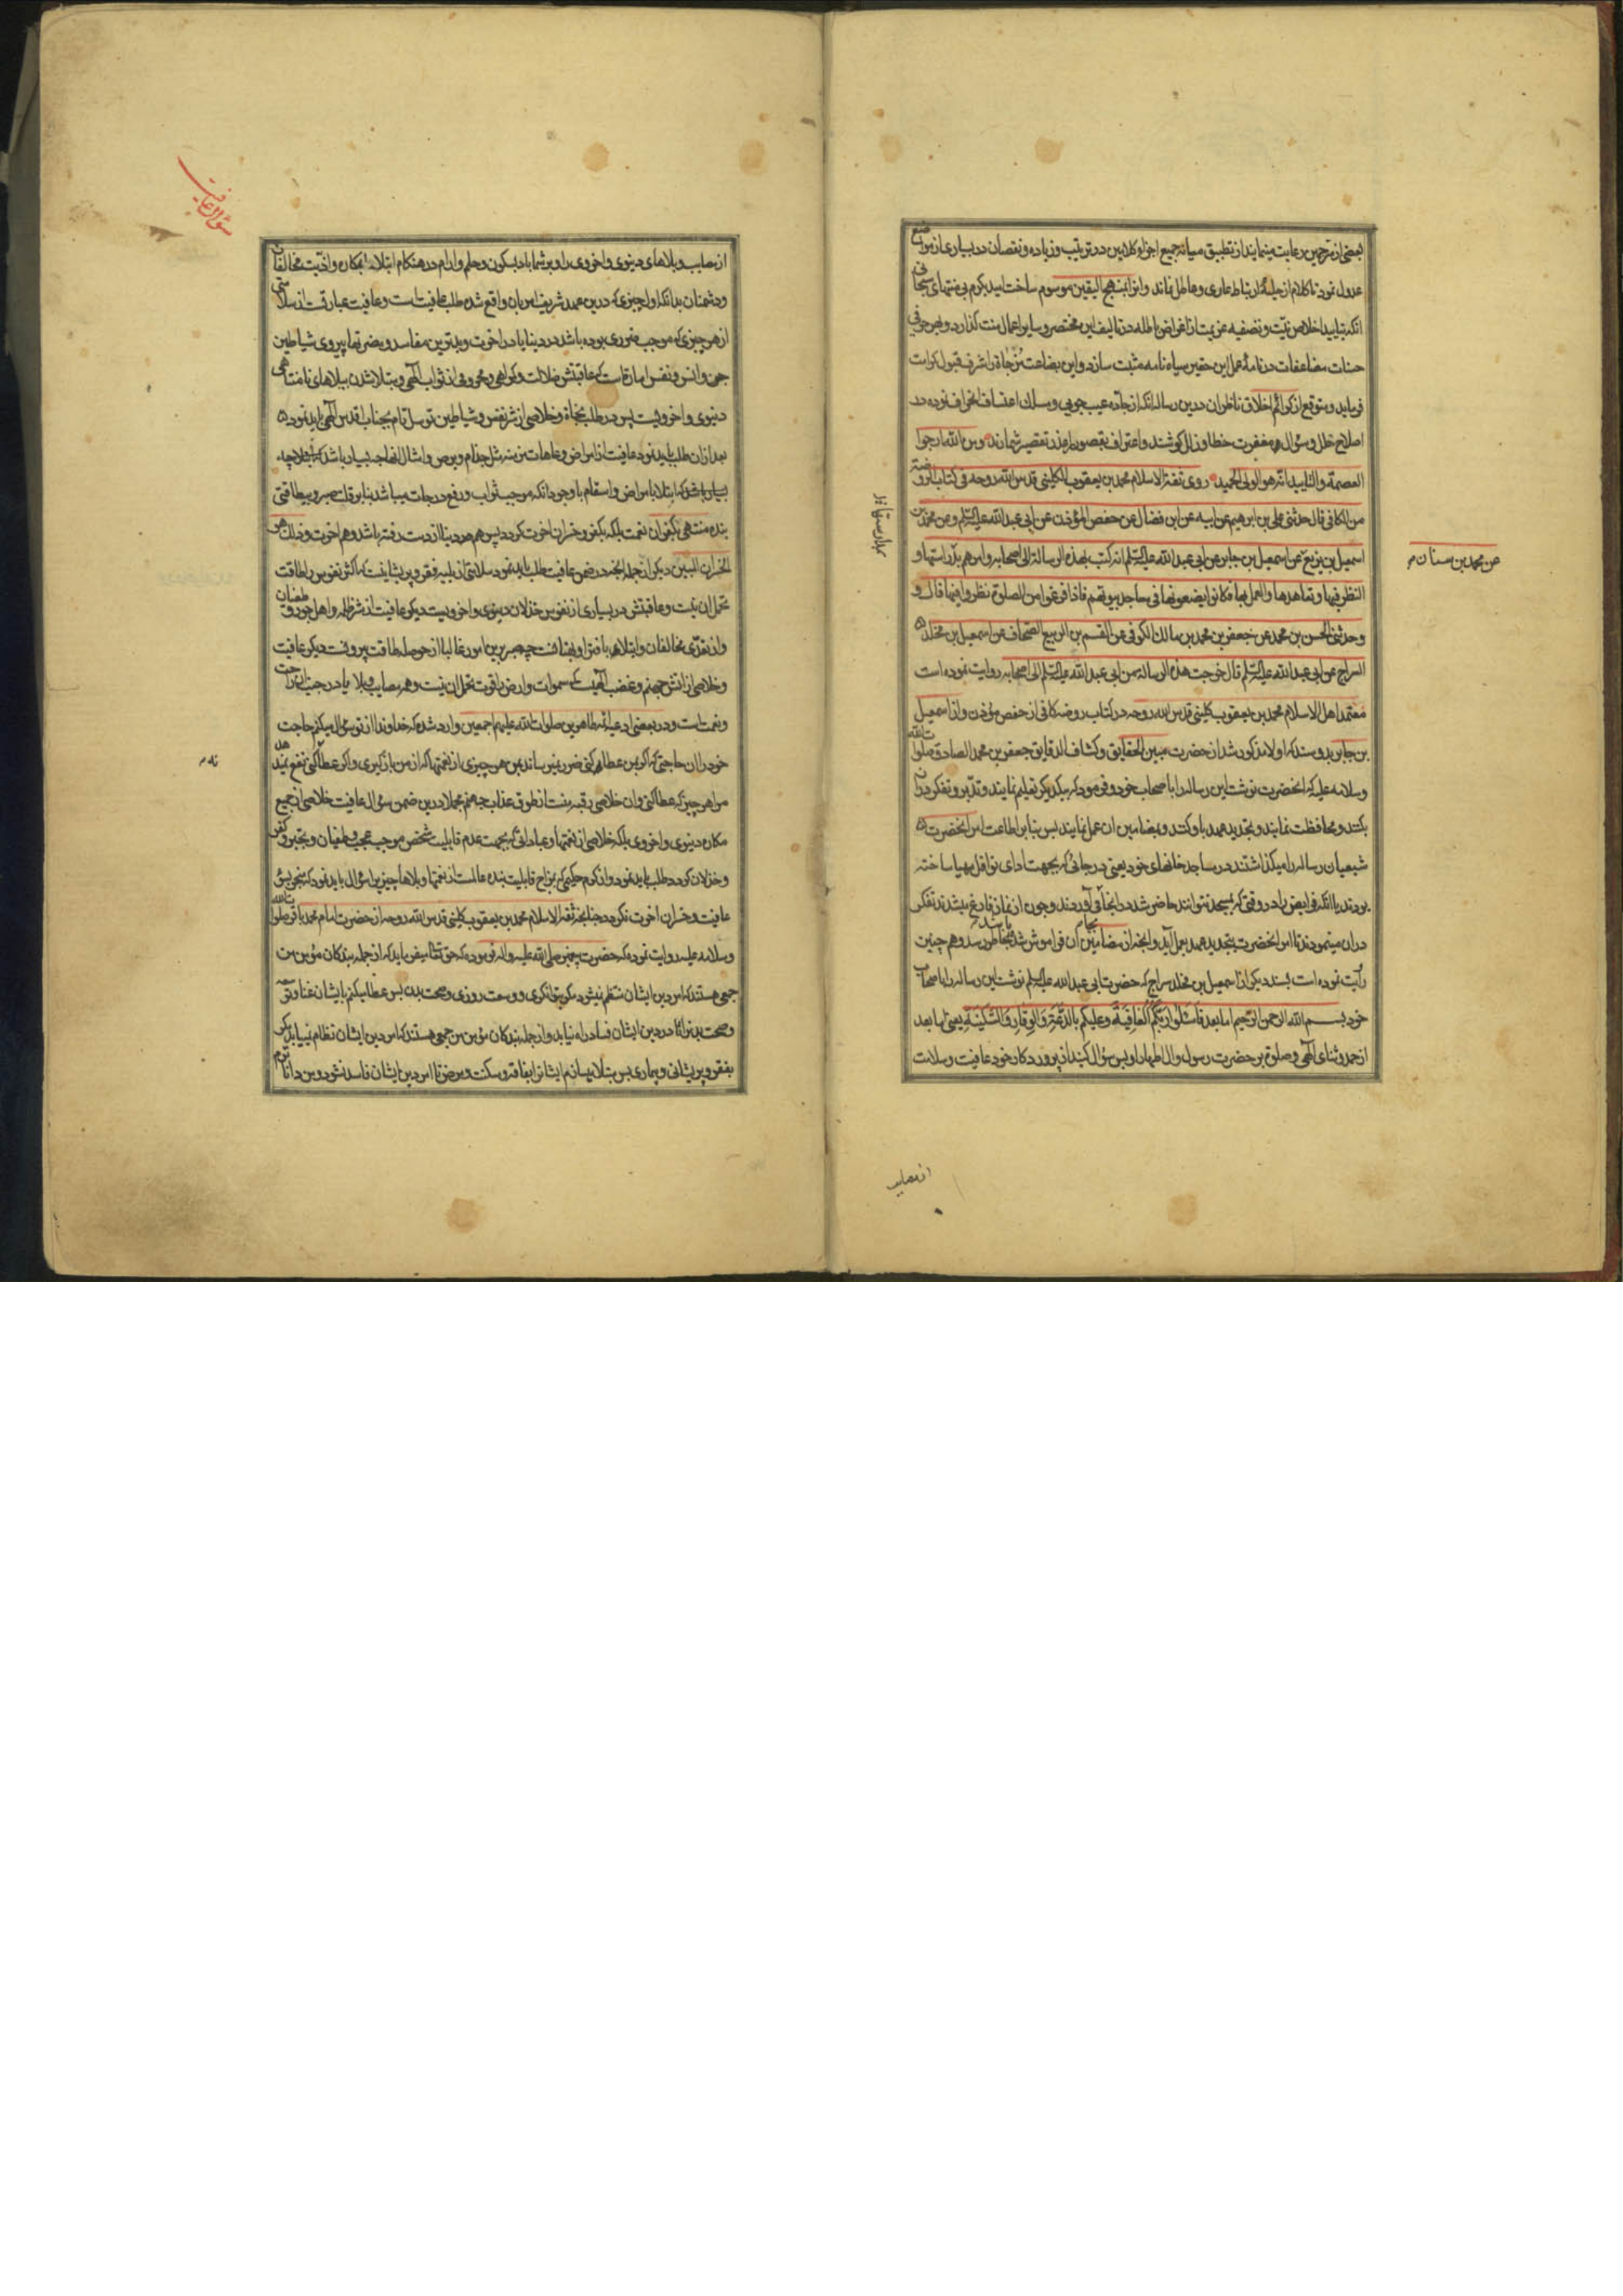 بعضی از مترجمین رعایت مینمایند از تطبیق میانه جمیع اجزاء کلامین در ترتیب و زیاده و نقصان در بسیاری از مواضع
عدول نمود تا کلام از حیله ارتباط عاری و عاطل نماند و این را بمنهج الیقین موسوم ساخت امید بکرم بی منتهای سبحانی
انکه بتایید اخلاص نیت و تصفیه عزیمت از اغراض باطله در تالیف این مختصر و سایر اعمال منت گذارد و بهر حرفی
حسنات مضاعفات در نامه عمل این حقیر سیاه نامه مثبت سازد و این بضاعت مزجاة را شرف قبول کرامت
فرماید و متوقع از کرائم اخلاق ناظران درین رساله انکه از جاده عیب جویی و مسلک اعتساف انحراف نموده در
اصلاح خلل و سؤال مغفرت خطا و زلل کوشند و اعتراف بقصور را عذر تقصیر شمارند و من الله ارجوا
العصمة والتایید انه هو الولی الحمید روی ثقة الاسلام محمد بن یعقوب الکلینی قدس الله روحه فی کتاب الروضة
من الکافی قال حدثنی علی بن ابرهیم عن ابیه عن ابن فضال عن حفص المؤذن عن ابی عبد الله علیه السلم و عن محمد بن
عن محمد بن سنان
اسمعیل بن بزیع عن اسمعیل بن جابر عن ابی عبد الله علیه السلم انه کتب بهذه الرسالة الی اصحابه و امرهم بمدارستها و
النظر فیها و تعاهدها والعمل بها فکانوا یضعونها فی مساجد بیوتهم فاذا فرغوا من الصلوة نظروا فیها قال و
وحدثنی الحسن بن محمد عن جعفر بن محمد بن مالک الکوفی عن القسم بن الربیع الصحاف عن اسمعیل بن مخلد
السراج عن ابی عبد الله علیه السلم قال خرجت هذه الرسالة من ابی عبد الله علیه السلم الی اصحابه روایت نموده است
معتمد اهل الاسلام محمد بن یعقوب کلینی قدس الله روحه در کتاب روضه کافی از حفص مؤذن و از اسمعیل
بن جابر بدو سند که اولا مذکور شد از حضرت مبین الحقایق و کشاف الدقایق جعفر بن محمد الصادق صلوات الله
و سلامه علیه که انحضرت نوشت این رساله را باصحاب خود و فرمود که بیکدیکر تعلیم نمایند و تدبر و تفکر در ان
بکنند و محافظت نمایند و تجدید عهد باو کنند و بمضامین ان عمل نمایند پس بنابر اطاعت امر انحضرت
شیعیان رساله را میگذاشتند در مساجد خانهای خود یعنی در جائی که بجهت ادای نوافل مهیا ساخته
بودند یا انکه فرایض را در وقتی که بمسجد نتوانند حاضر شد در انجا می آوردند و چون از نماز فارغ میشدند تفکر
در ان مینمودند تا امر انحضرت بتجدید عهد بعمل آید و انچه از مضامین ان فراموش شده باشد بخاطر رسد و هم چنین
روایت نموده است بسند دیکر از اسمعیل بن مخلد سراج که حضرت ابی عبد الله علیه السلم نوشت این رساله را باصحاب
خود بسم الله الرحمن الرحیم اما بعد فاسئلوا ربکم العافیة وعلیکم بالدعة والوقار والسکینة یعنی اما بعد
از حمد و ثنای الهی و صلوة بر حضرت رسول و ال اطهار او پس سؤال کنید از پروردکار خود عافیت و سلامت
از مصایب
سؤال عافیت
از مصایب و بلاهای دنیوی و اخروی را و بر شما باد بسکون و حلم و ارام در هنکام ابتلا بمکاره و اذیت مخالفان
و دشمنان بدانکه اول چیزی که درین عهد شریف امر بان واقع شده طلب عافیت است و عافیت عبارتست از سلامتی
از هر چیزی که موجب ضرری بوده باشد در دنیا یا در اخرت و بدترین مفاسد و مضرتها پیروی شیاطین
جن و انس و نفس اماره است که عاقبتش ضلالت و کمراهی و محرومی از ثواب الهی و مبتلا شدن ببلاهای نامتناهی
دنیوی و اخرویست پس در طلب نجاة و خلاصی از شر نفس و شیاطین توسل تام بجناب اقدس الهی باید نمود
بعد ازان طلب باید نمود عافیت از امراض و عاهات مزمنه مثل جذام و برص و امثال انها چه بسیار باشد
که ابتلا بامراض و اسقام با وجود انکه موجب ثواب و رفع درجات میباشد بنابر قلت صبر و بیطاقتی
بنده منتهی بکفران نعمت بلکه بکفر و خسران اخرت کردد پس هم دنیا از دست رفته باشد و هم اخرت و ذلک هو
الخسران المبین دیکر از جمله انچه در ضمن عافیت طلب باید نمود سلامتی از بلیه فقر و پریشانیست که اکثر نفوس را طاقت
تحمل ان نیست و عاقبتش در بسیاری از نفوس خذلان دنیوی و اخرویست دیکر عافیت از شر ظلمه و اهل جور و طغیان
و از تعدی مخالفان و ابتلاها بافترا و بهتانست چه صبر برین امور غالبا از حوصله طاقت بیرونست دیکر عافیت
و خلاصی از اتش جهنم و غضب الهیست که سموات و ارض را قوت تحمل ان نیست و همه مصایب و بلایا در جنب ان راحت
و نعمتست و در بعضی ادعیه ائمه طاهرین صلوات الله علیهم اجمعین وارد شده که خداوندا از تو سؤال میکنم حاجت
خود را ان حاجتی که اگر بمن عطا کنی ضرر نمیرساند بمن هر چیزی از نعمتها که از من باز گیری و اگر عطا نکنی نفع نمیدهد
مرا هر چیز که عطا کنی و ان خلاصی رقبه منست از طوق عذاب جهنم مجملا درین ضمن سؤال عافیت خلاصی از جمیع
مکاره دنیوی و اخروی بلکه خلاصی از نعمتها و عباداتی که بجهت عدم قابلیت شخص موجب عجب و طغیان و تجبر و کفر
و خذلان کردد طلب باید نمود و از کرم حکیمی که بمزاج قابلیت بنده عالمست از نعمتها و بلاها چیزی را سؤال باید نمود که منجر بسوء
عاقبت و خسران اخرت نکردد چنانچه ثقة الاسلام محمد بن یعقوب کلینی قدس الله روحه از حضرت امام محمد باقر صلوات الله
و سلامه علیه روایت نموده که حضرت پیغمبر صلی الله علیه و اله فرموده که حق تعالی میفرماید که از جمله بندکان مؤمن من
جمعی هستند که امر دین ایشان منتظم نمیشود مگر بتوانکری و وسعت روزی و صحت بدن پس عطا میکنم بایشان غنا و توسعه
و صحت بدنرا تا در دین ایشان فساد راه نیابد و از جمله بندکان مؤمن من جمعی هستند که امر دین ایشان نظام نمییابد مکر
بفقر و پریشانی و بیماری پس مبتلا میسازم ایشانرا بفاقه و مسکنت و مرض تا امر دین ایشان فاسد نشود و من داناترم